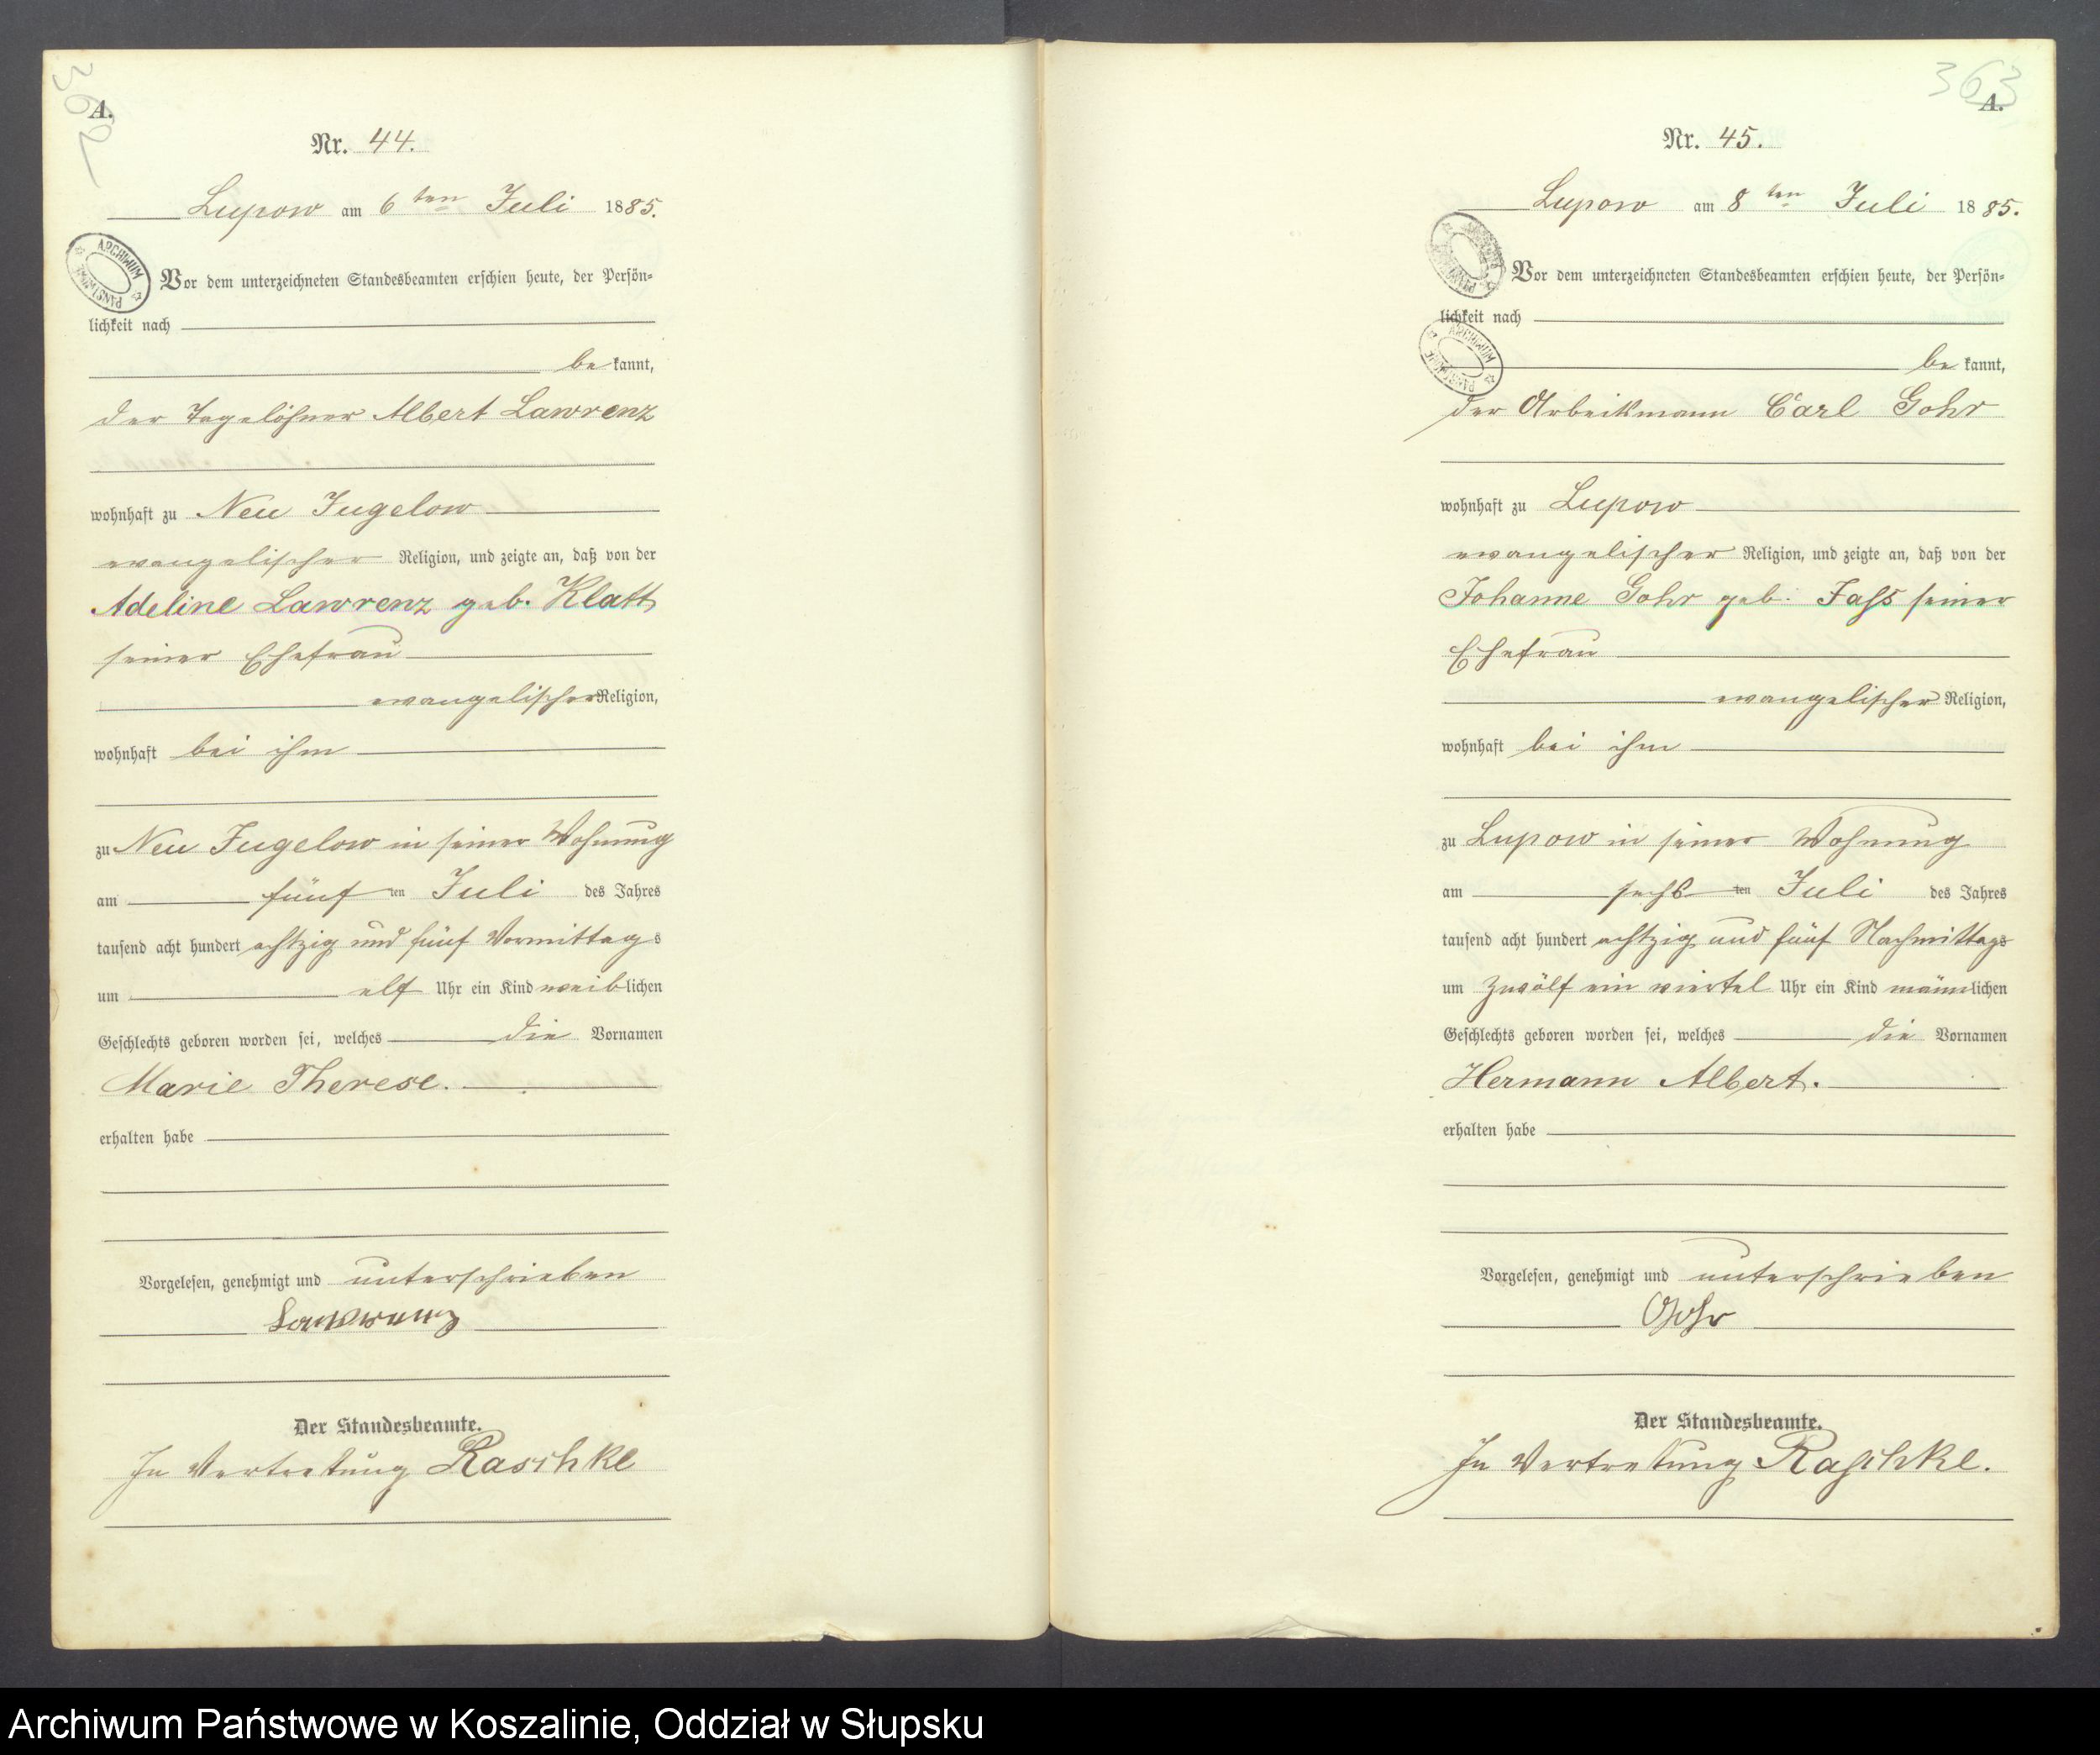 362
A.
Nr. 44.
Lupow am 6ten Juli 1885.
ARCHIWUM PAŃSTWOWE
Vor dem unterzeichneten Standesbeamten erschien heute, der Persön-
lichkeit nach
be kannt,
der Tagelöhner Albert Lawrenz
wohnhaft zu Neu Jugelow
evangelischer Religion, und zeigte an, daß von der
Adeline Lawrenz geb. Klatt
seiner Ehefrau
evangelischer Religion,
wohnhaft bei ihm
zu Neu Jugelow in seiner Wohnung
am fünf ten Juli des Jahres
tausend acht hundert achtzig und fünf Vormittags
um elf Uhr ein Kind weiblichen
Geschlechts geboren worden sei, welches die Vornamen
Marie Therese.
erhalten habe
Vorgelesen, genehmigt und unterschrieben
Lawwrenz
Der Standesbeamte.
In Vertretung Raschke
363
A.
Nr. 45.
Lupow am 8ten Juli 1885.
Vor dem unterzeichneten Standesbeamten erschien heute, der Persön-
lichkeit nach
ARCHIWUM PAŃSTWOWE
be kannt,
der Arbeitsmann Carl Gohr
wohnhaft zu Lupow
evangelischer Religion, und zeigte an, daß von der
Johanne Gohr geb. Fass seiner
Ehefrau
evangelischer Religion,
wohnhaft bei ihm
zu Lupow in seiner Wohnung
am sechs ten Juli des Jahres
tausend acht hundert achtzig und fünf Nachmittags
um zwölf ein viertel Uhr ein Kind männlichen
Geschlechts geboren worden sei, welches die Vornamen
Hermann Albert.
erhalten habe
Vorgelesen, genehmigt und unterschrieben
Gohr
Der Standesbeamte.
In Vertretung Raschke.
Archiwum Państwowe w Koszalinie, Oddział w Słupsku